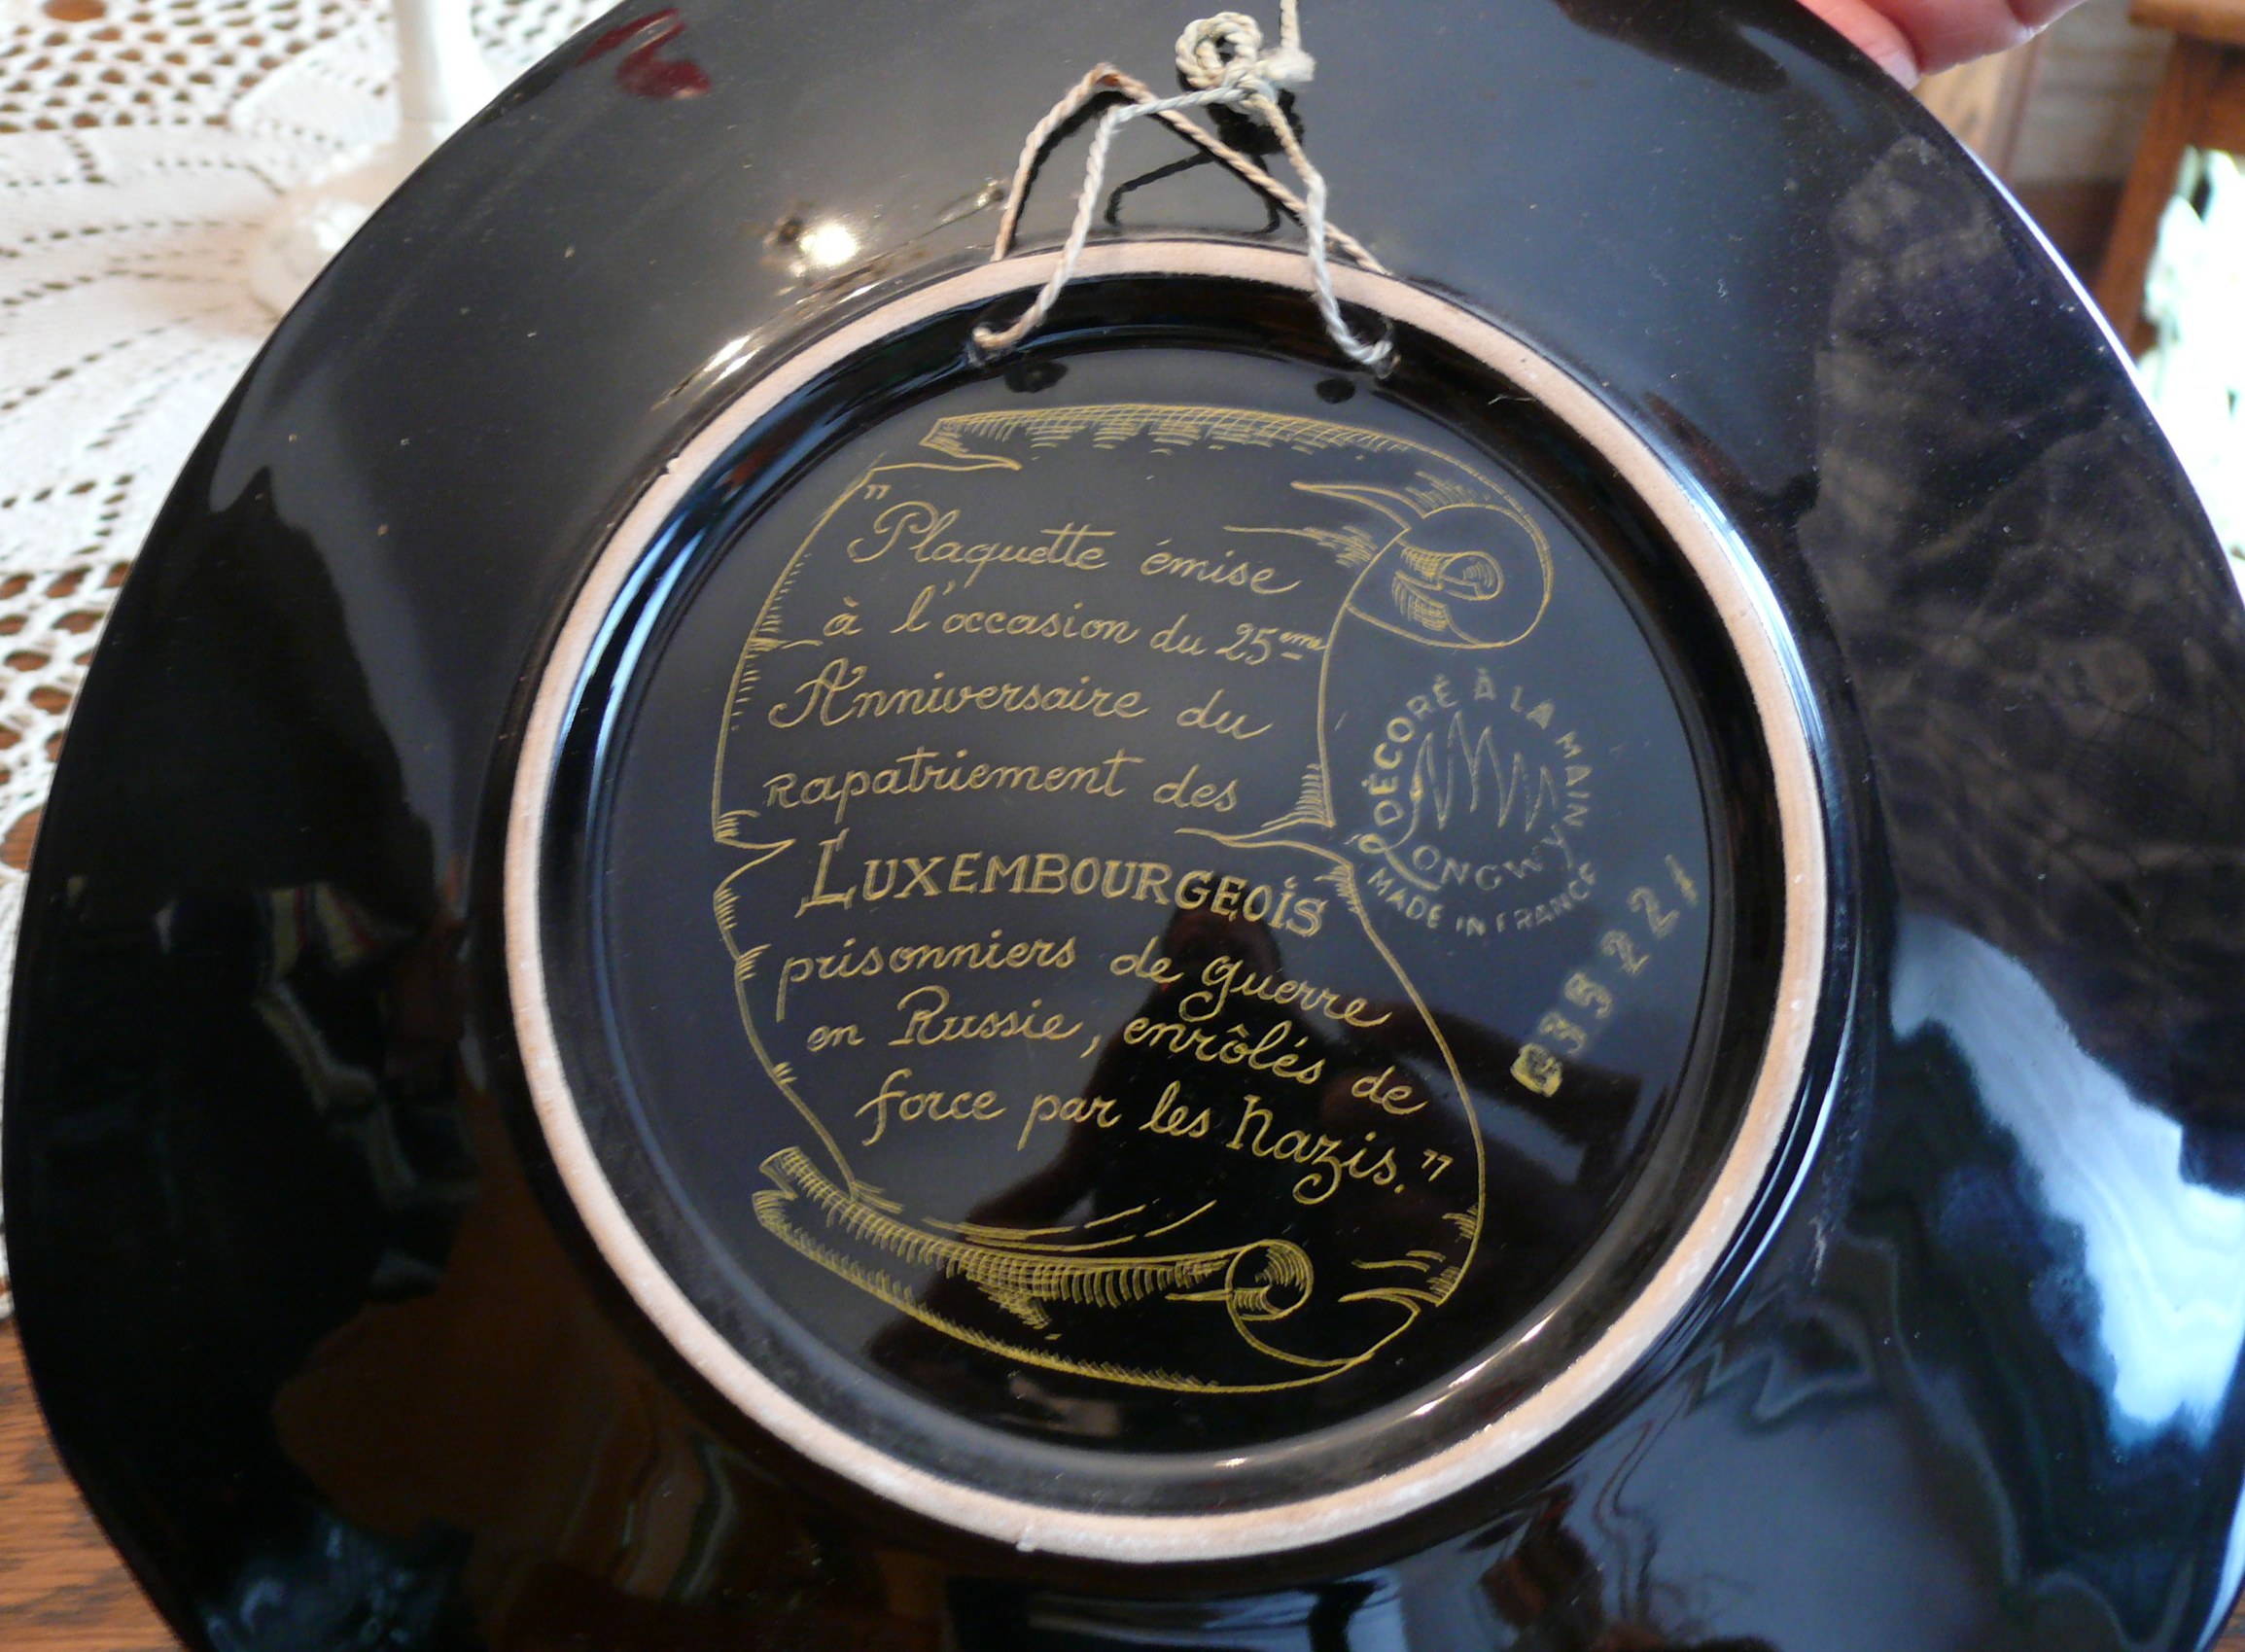 "Plaquette émise
à l'occasion du 25ème
Anniversaire du
Rapatriement des
LUXEMBOURGEOIS
prisonniers de guerre
en Russie, enrôlés de
force par les nazis."
DÉCORÉ À LA MAIN
LONGWY
MADE IN FRANCE